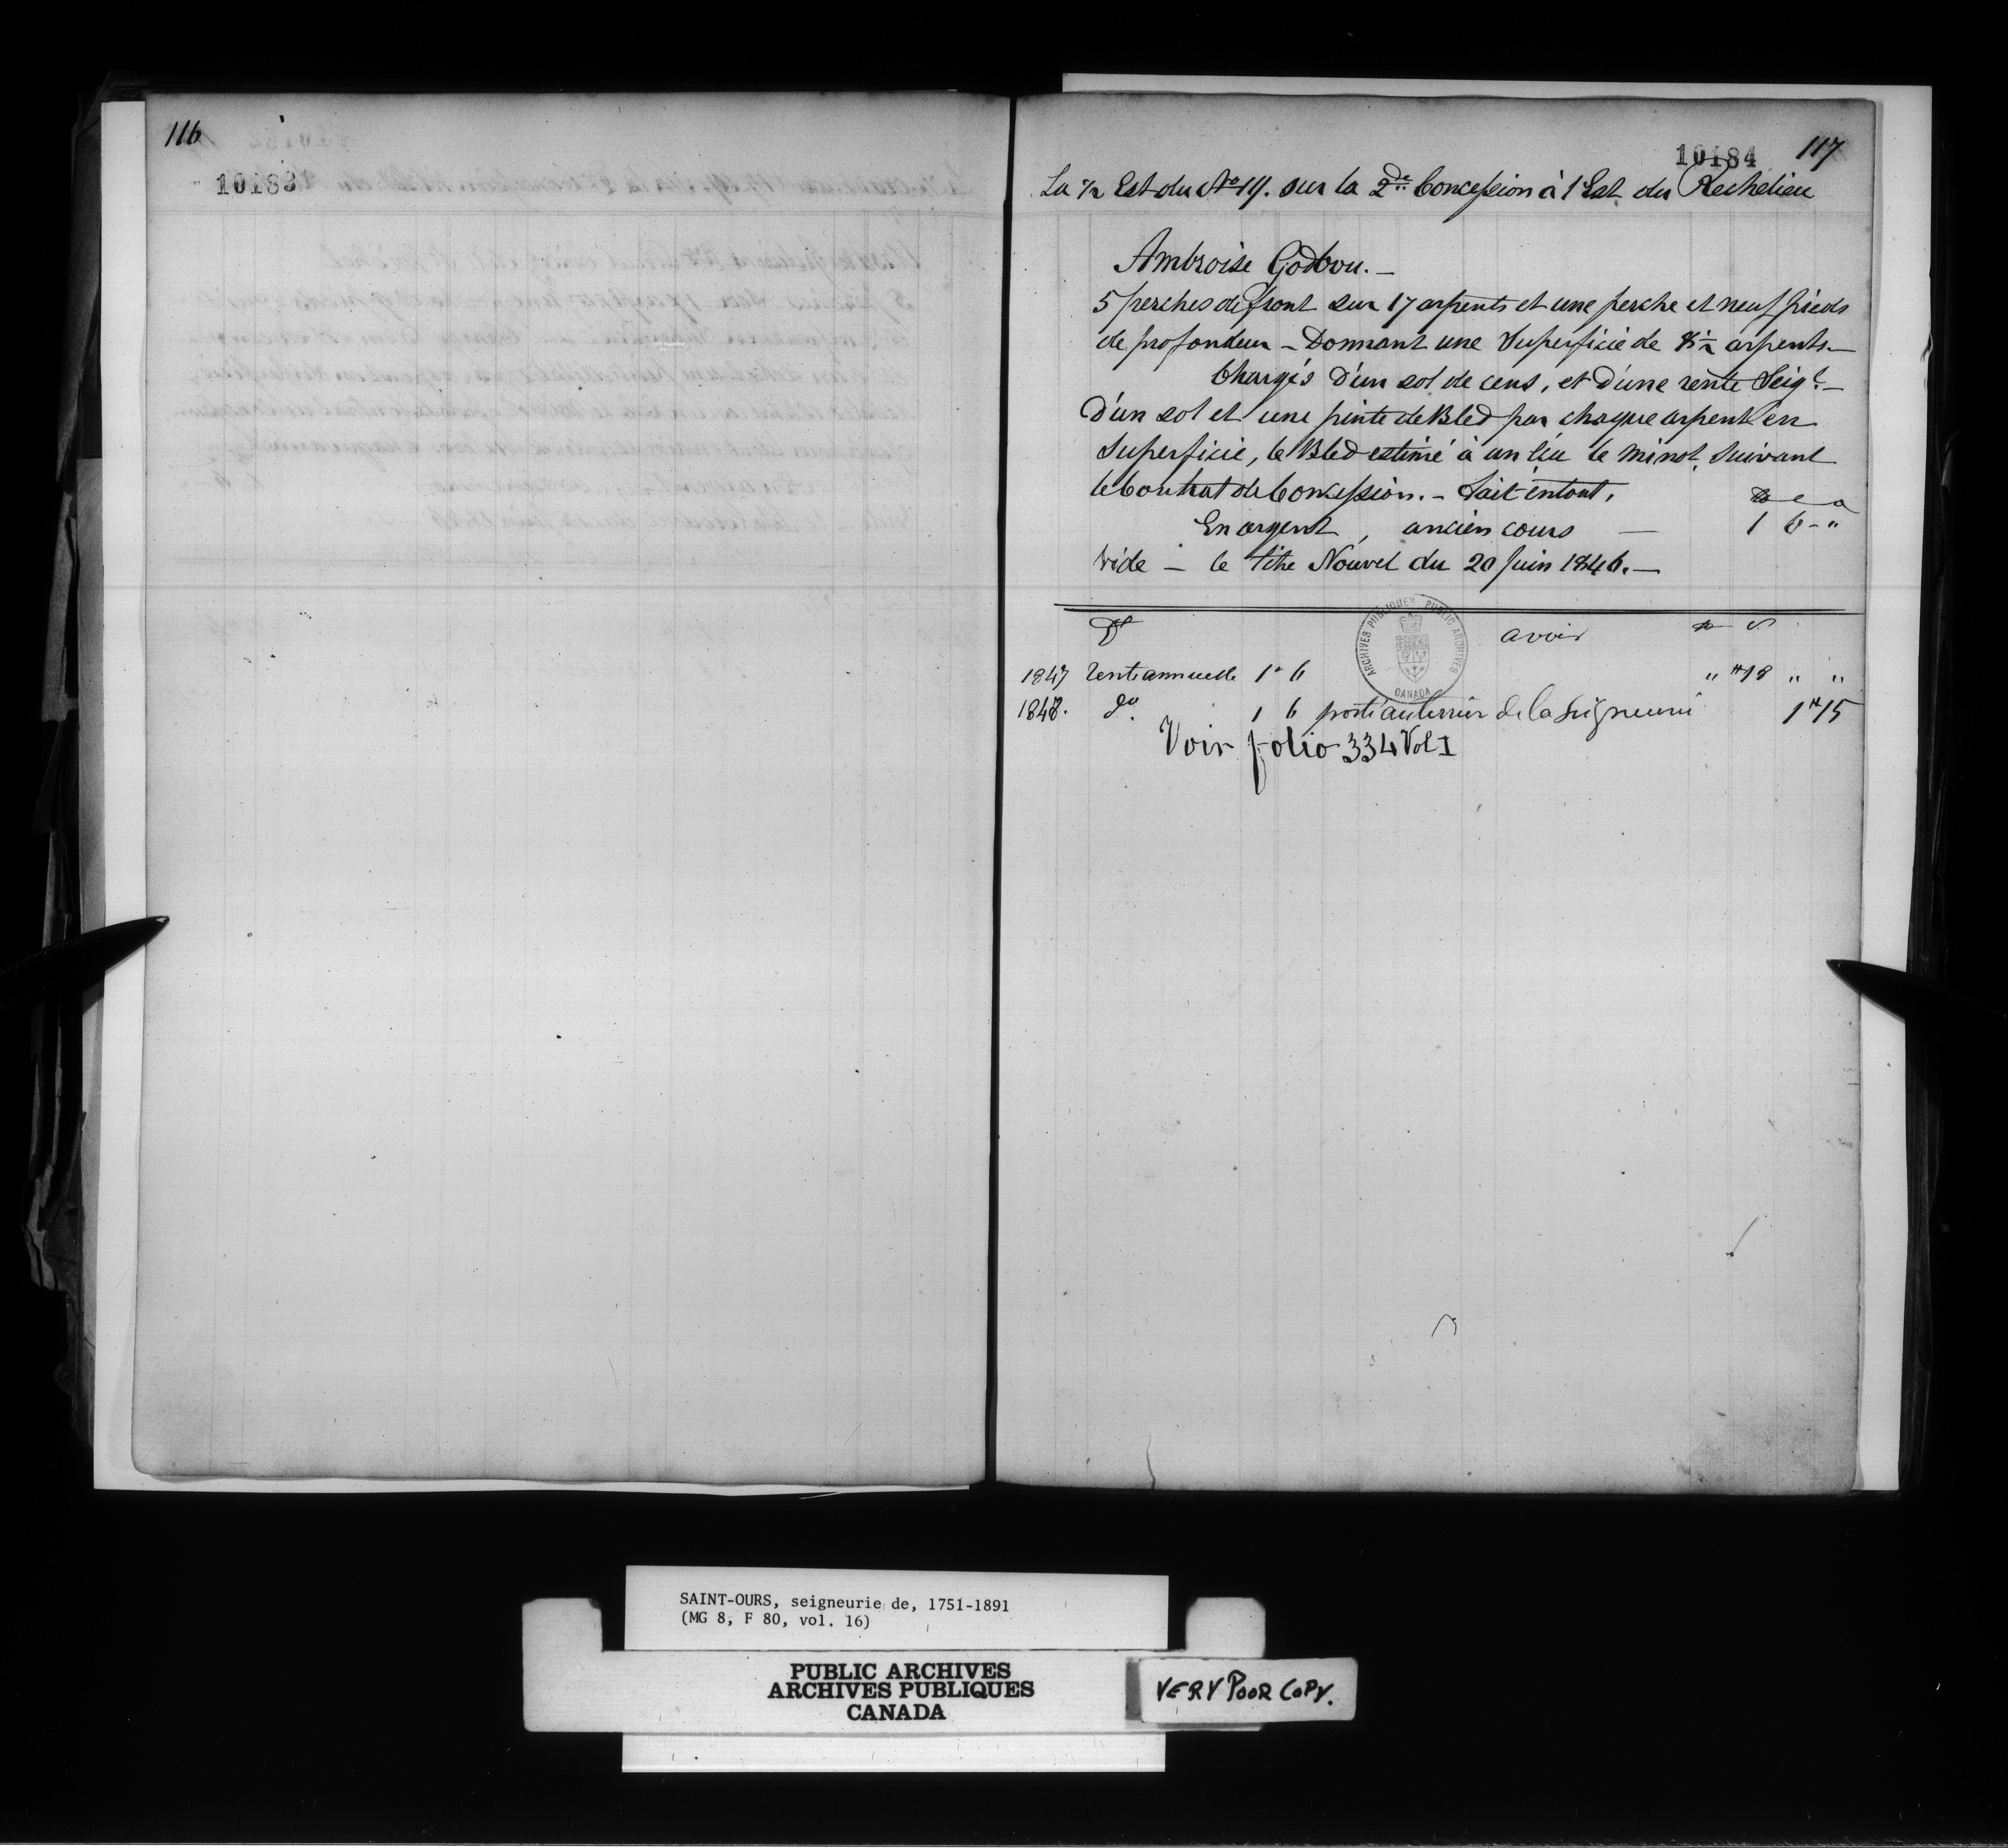 116
10183
10184 117
La ½ Est du No 19. sur la 2de Concession à l'Est du Rechelieu
Ambroise Godbou. —
5 perches de front sur 17 arpents et une perche et neuf pieds
de profondeur — Donnant une Superficie de 8½ arpents. —
Chargés D'un sol de cens, et D'une rente Seigl. —
D'un sol et une pinte de Bled par chaque arpent en
Superficie, le Bled estimé à un écu le minot, Suivant
le Contrat de Concession. — Fait entout,
En argent, ancien cours — 1 6 - "
Vide — le titre Nouvel du 20 Juin 1846. —
Dt avoir
ARCHIVES PUBLIQUES PUBLIC ARCHIVES
CANADA
1847 Rente annuelle 1 " 6 " " 18 " "
1848. do 1 6 porté au terrier de la Seigneurie 1 " 15
Voir folio 334 Vol I
SAINT-OURS, seigneurie de, 1751-1891
(MG 8, F 80, vol. 16)
PUBLIC ARCHIVES
ARCHIVES PUBLIQUES
CANADA
VERY POOR COPY.